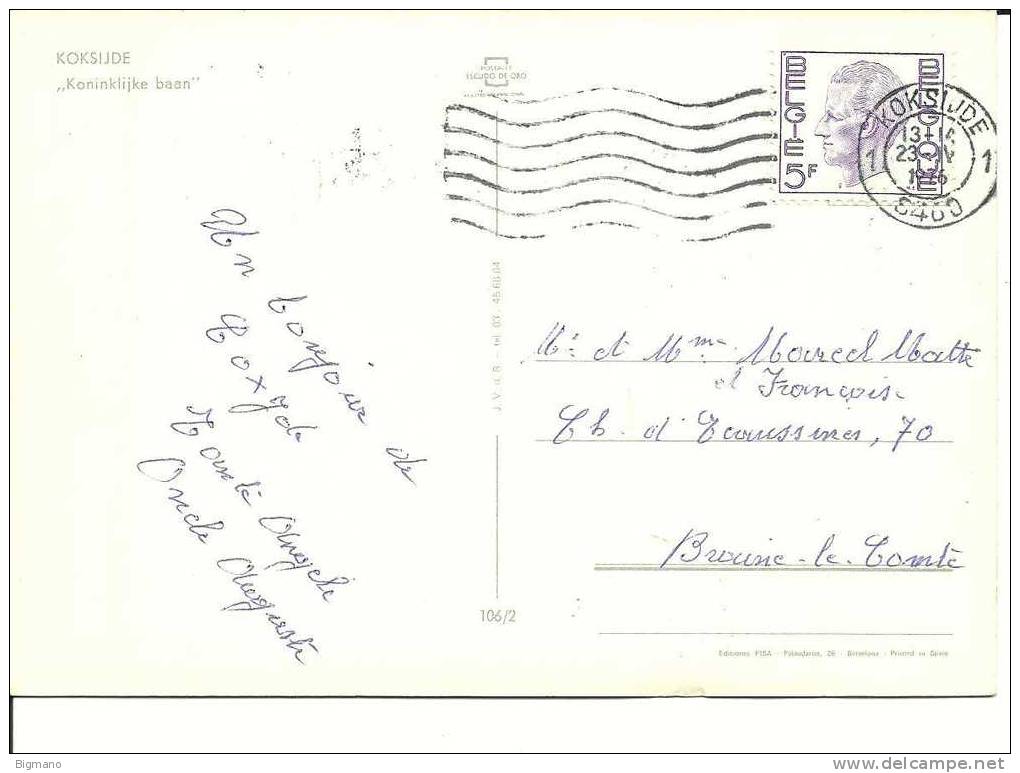 KOKSIJDE
„Koninklijke baan”
POSTALES
ESCUDO DE ORO
BELGIE 5F
BELGIQUE
KOKSIJDE
13-16
23
1 1
8460
Un bonjour de
Coxyde
Tante Angèle
Oncle Auguste
J. V. d. B. - Tel. 03 - 45.68.04
106/2
Mr et Mme Marcel Matte
et François
Ch. d'Ecaussines, 70
Braine-le-Comte
Ediciones FISA - Palaudarias, 26 - Barcelona - Printed in Spain
Bigmano